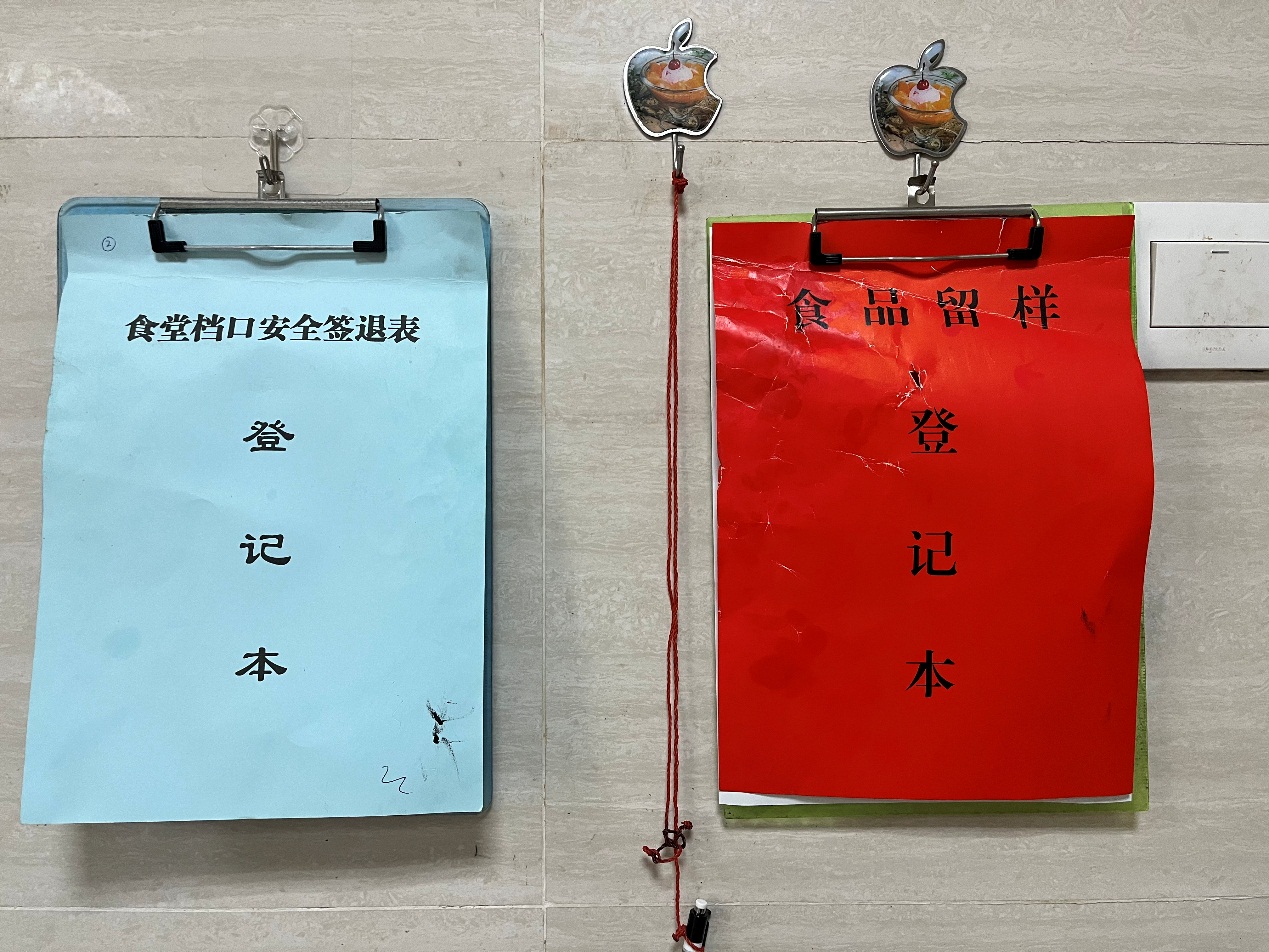 ②
食堂档口安全签退表
登
记
本
食品留样
登
记
本